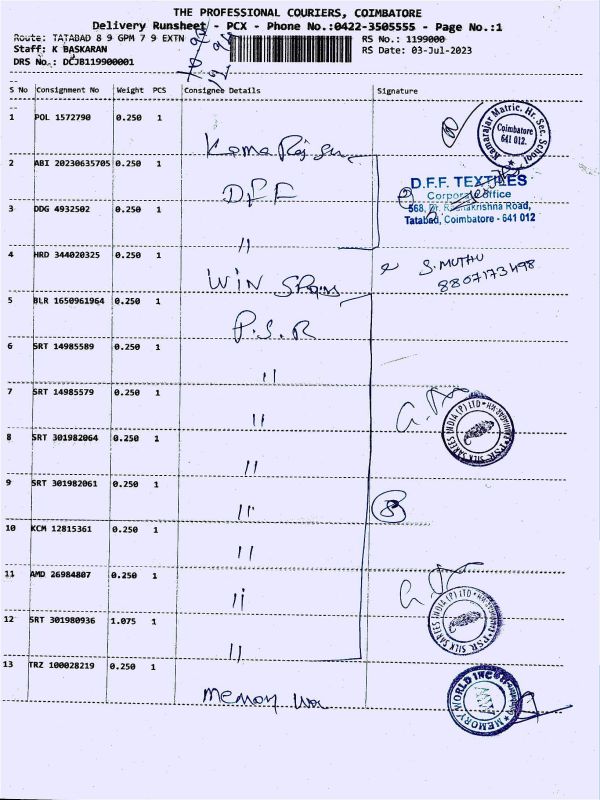 THE PROFESSIONAL COURIERS, COIMBATORE
Delivery Runsheet - PCX - Phone No.:0422-3505555 - Page No.:1
Route: TATABAD 8 9 GPM 7 9 EXTN
RS No.: 1199000
Staff: K BASKARAN
RS Date: 03-Jul-2023
DRS No.: DCJB119900001
S No Consignment No Weight PCS Consignee Details Signature
1 POL 1572790 0.250 1
Kamarajar Matric. Hr. Sec. School
Coimbatore
641 012.
2 ABI 20230635705 0.250 1 D.F.F
D.F.F. TEXTILES
Corporate Office
568, Dr. Radhakrishna Road,
Tatabad, Coimbatore - 641 012
3 DDG 4932502 0.250 1 "
4 HRD 344020325 0.250 1 WIN
S. MUTHU
8807173498
5 BLR 1650961964 0.250 1 P.S.R
6 SRT 14985589 0.250 1 "
7 SRT 14985579 0.250 1 "
PSR SILK SAREES INDIA (P) LTD
8 SRT 301982064 0.250 1 "
9 SRT 301982061 0.250 1 "
8
10 KCM 12815361 0.250 1 "
11 AMD 26984807 0.250 1 "
12 SRT 301980936 1.075 1 "
PSR SILK SAREES INDIA (P) LTD
13 TRZ 100028219 0.250 1 memory
MEMORY WORLD INC